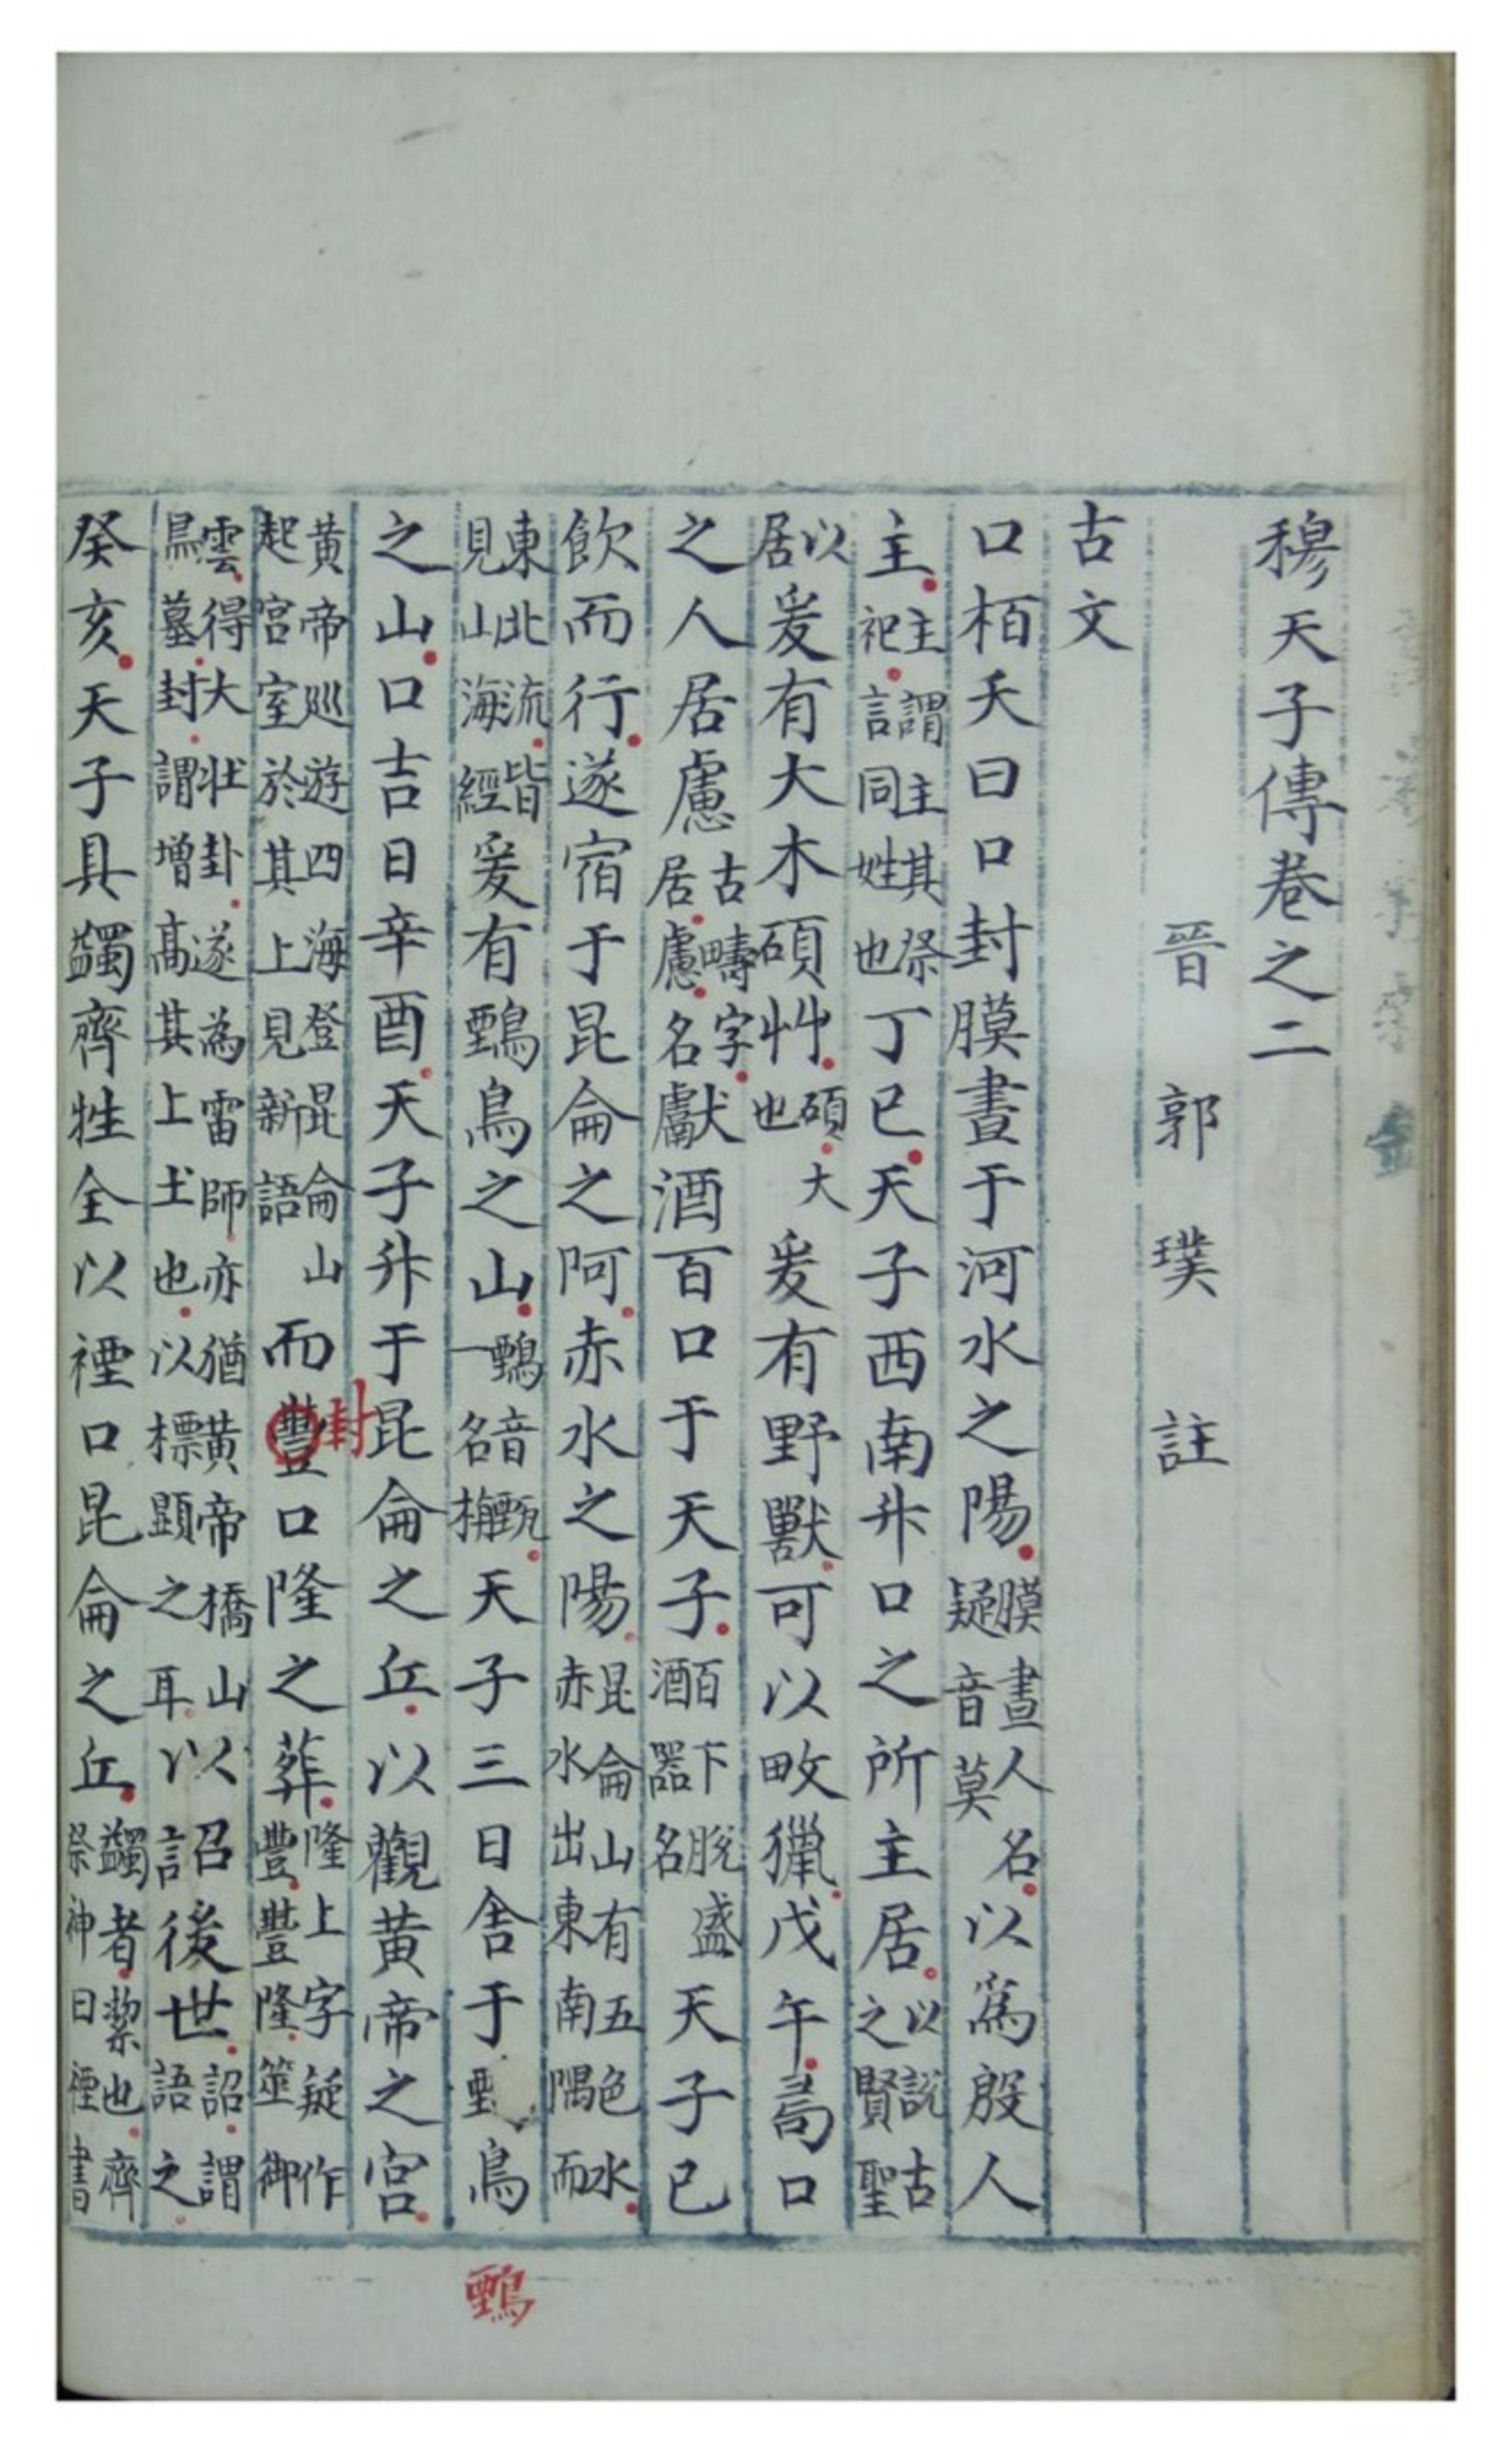 穆天子傳卷之二
晉郭璞註
古文
口栢夭曰口封膜晝于河水之陽膜晝人名疑音莫以爲殷人
主主謂主其祭祀言同姓也丁巳天子西南升口之所主居以說古之賢聖
以居爰有大木碩艸碩大也爰有野獸可以畋獵戊午𠷎口
之人居慮古疇字居慮名獻酒百口于天子百下脫盛酒器名天子已
飲而行遂宿于昆侖之阿赤水之陽昆侖山有五色水赤水出東南隅而
東北流皆見山海經爰有鶽鳥之山鶽音甄一名櫋天子三日舍于鶽鳥
之山口吉日辛酉天子升于昆侖之丘以觀黃帝之宮
黃帝巡遊四海登昆侖山起宮室於其上見新語而豐封口隆之葬隆上字疑作豐豐隆筮御
雲得大壯卦遂為雷師亦猶黃帝橋山鳥墓封謂增高其上土也以標顯之耳以詔後世詔謂語之
癸亥天子具蠲齊牲全以禋口昆侖之丘蠲者潔也齊祭神曰禋書
鶽